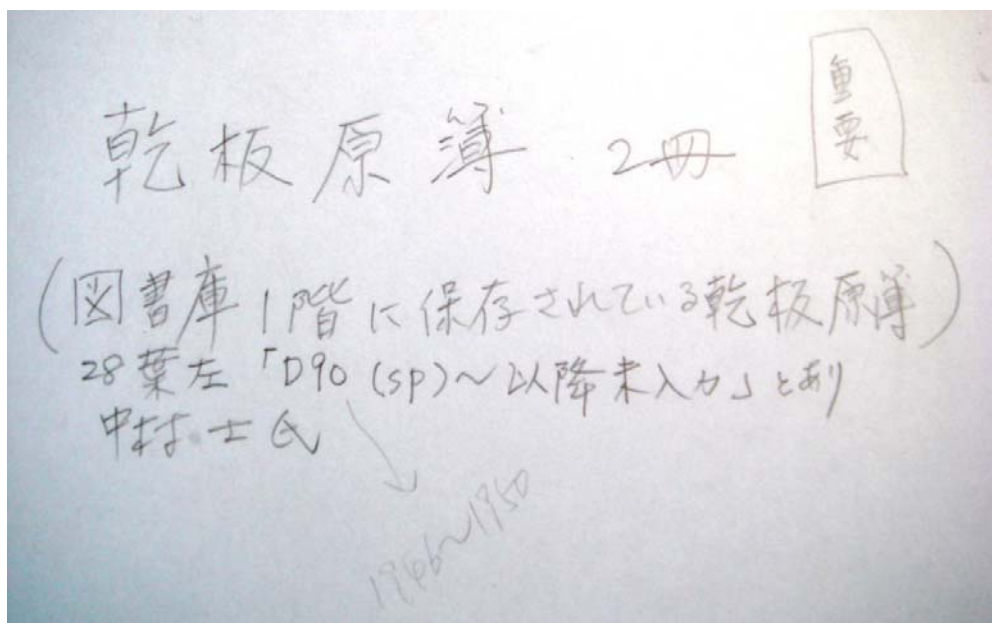 乾板原簿 2冊
重要
(図書庫1階に保存されている乾板原簿)
28葉左「D90(SP)〜以降未入力」とあり
中村士氏
1946〜1950